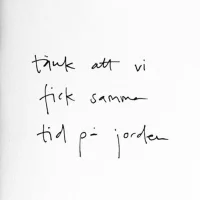 tänk att vi
fick samma
tid på jorden